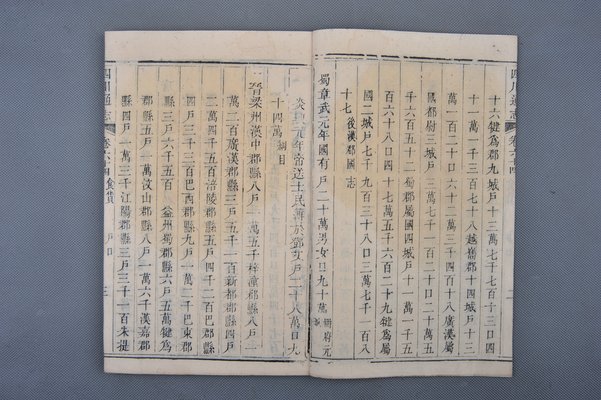 四川通志 卷六十四
十六犍爲郡九城戸十三萬七千七百十三口四
十一萬一千三百七十八越嶲郡十四城戸十三
萬百二十口六十二萬三千四百十八廣漢屬
國都尉三城戸三萬七千一百二十口二十萬五
千六百五十二蜀郡屬國四城戸十一萬一千五
百六十八口四十七萬五千六百二十九犍爲屬
國二城戸七千九百三十八口三萬七千一百八
十七 後漢郡國志
蜀章武元年國有戸二十萬男女口九十萬
炎興元年帝送士民簿於鄧艾戸二十八萬口九
十四萬 綱目
晉梁州漢中郡縣八戸一萬五千梓潼郡縣八戸一
萬二百廣漢郡縣三戸五千一百新都郡縣四戸
二萬四千五百涪陵郡縣五戸四千二百巴郡縣
四戸三千三百巴西郡縣九戸一萬二千巴東郡
縣三戸六千五百 益州蜀郡縣六戸五萬犍爲
郡縣五戸一萬汶山郡縣八戸一萬六千漢嘉郡
縣四戸一萬三千江陽郡縣三戸三千一百朱提
四川通志 卷六十四 食貨 戸口 三